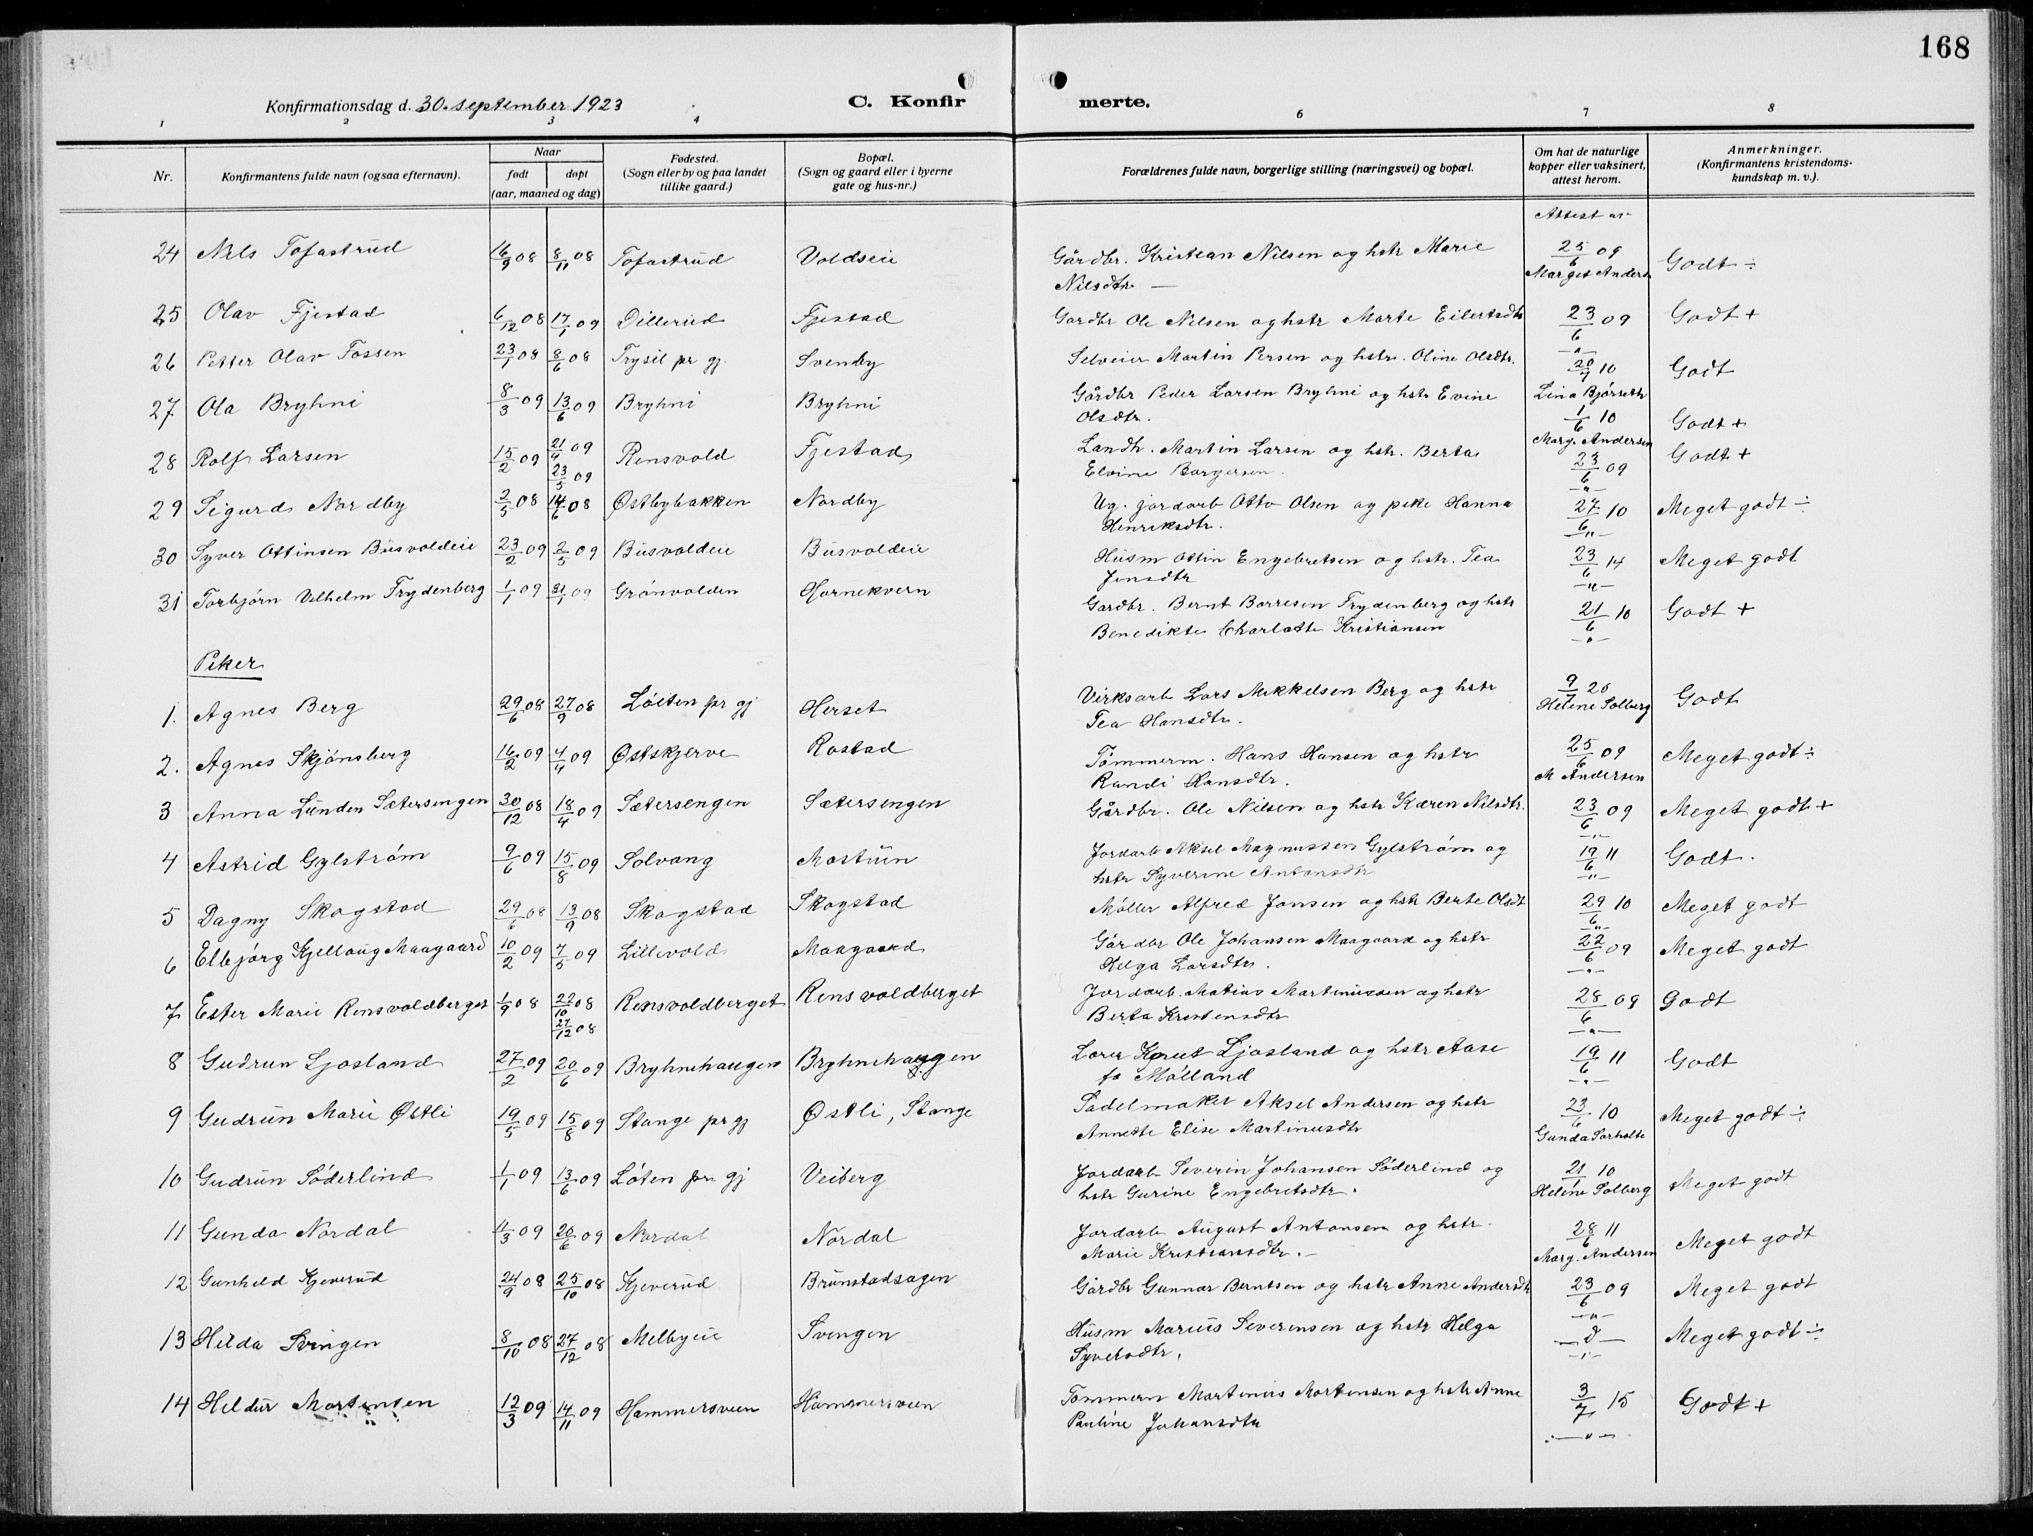 168
Konfirmationsdag d. 30. september 1923
C. Konfir
merte.
1 2 3 4 6 7 8
Nr.
Konfirmantens fulde navn (ogsaa efternavn).
Naar
født
døpt
(aar, maaned og dag)
Fødested.
(Sogn eller by og paa landet
tillike gaard.)
Bopæl.
(Sogn og gaard eller i byerne
gate og hus-nr.)
Forældrenes fulde navn, borgerlige stilling (næringsvei) og bopæl.
Om hat de naturlige
kopper eller vaksinert,
attest herom.
Anmerkninger.
(Konfirmantens kristendoms-
kundskap m. v.).
Attest av
24 Nils Tofastrud 16/9 08 8/11 08 Tofastrud Voldseie Gårdbr. Kristian Nilsen og hstr Marie 25/6 09 Godt ÷
Nilsdtr. — Marget Anders
25 Olav Fjestad 6/12 08 17/1 09 Dillerud Fjestad Gardbr Ole Nilsen og hstr Marte Eilertsdtr 23/6 09 Godt +
-"-
26 Petter Olav Fossen 23/1 08 8/6 08 Trysil pr gj. Svenby Selveier Martin Persen og hstr. Oline Olsdtr. 20/7 10 Godt
27 Ola Bryhni 8/3 09 13/6 09 Bryhni Bryhni Gårdbr Peder Larsen Bryhni og hstr Evine Lina Bjørseth
Olsdtr. 1/6 10 Godt +
Marg. Andersen
28 Rolf Larsen 15/2 09 21/4 09 23/5 09 Rensvold Fjestad Landh. Martin Larsen og hstr. Berta Godt +
Elvine Borgersen. 23/6 09
-"-
29 Sigurd Nordby 2/5 08 14/6 08 Østbybakken Nordby Ug. jordarb Otto Olsen og pike Hanna 27/6 10 Meget godt ÷
Henriksdtr. -"-
30 Syver Ottinsen Busvoldeie 23/2 09 2/5 09 Busvoldeie Busvoldeie Husm Ottin Engebretsen og hstr. Tea 23/6 14 Meget godt
Jensdtr -"-
31 Torbjørn Vilhelm Frydenberg 1/1 09 31/1 09 Grønvolden Hornekvern Gardbr. Bernt Borresen Frydenberg og hstr 21/6 10 Godt +
Benedikte Charlotte Kristiansen -"-
Piker
1. Agnes Berg 29/6 08 27/9 08 Løiten pr gj Herset Virksarb Lars Mikkelsen Berg og hstr 9/7 20 Godt
Tea Hansdtr. Helene Solberg
2. Agnes Skjønsberg 16/2 09 4/4 09 Østskjerve Rostad Tømmerm. Hans Hansen og hstr 25/6 09 Meget godt ÷
Randi Hansdtr. M Andersen
3 Anna Lunden Sætersengen 30/12 08 18/4 09 Sætersengen Sætersengen Gårdbr. Ole Nilsen og hstr Karen Nilsdtr. 23/6 09 Meget godt +
-"-
4 Astrid Gylstrøm 9/6 09 15/8 09 Solvang Mostuen Jordarb Aksel Magnussen Gylstrøm og 19/6 11 Godt.
hstr Syverine Antonsdtr -"-
5 Dagny Skogstad 29/6 08 13/9 08 Skogstad Skogstad Møller Alfred Jansen og hstr Berte Olsdt 29/6 10 Meget godt
-"-
6 Elbjørg Kjellaug Maagaard 10/2 09 7/5 09 Lillevold Maagaard Gårdbr Ole Johansen Maagaard og hstr 22/6 09 Meget godt
Helga Larsdtr. -"-
7 Ester Marie Rensvoldberget 1/9 08 22/10 08 27/12 08 Rensvoldberget Rensvoldberget Jordarb. Matias Martinussen og hstr 28/6 09 Godt
Berta Kristensdtr -"-
8 Gudrun Ljosland 27/2 09 20/6 09 Bryhnehaugen Bryhnehaugen Lærer Knut Ljosland og hstr Aase 19/6 11 Godt
fø Mølland -"-
9 Gudrun Marie Østli 19/5 09 15/8 09 Stange pr gj Østli, Stange Sadelmaker Aksel Andersen og hstr 23/6 10 Meget godt ÷
Annette Elise Martinusdtr Gunda Sørholte
10 Gudrun Søderlind 1/1 09 13/6 09 Løten pr gj Veiberg Jordarb Severin Johansen Søderlind og 21/1 10 Meget godt
hstr Gurine Engebretsdtr. Helene Solberg
11 Gunda Nordal 4/3 09 20/6 09 Nordal Nordal Jordarb August Antonsen og hstr. 28/6 11 Meget godt
Marie Kristiansdtr. — Marg. Andersen
12 Gunhild Kjeverud 24/9 08 25/10 08 Kjeverud Brunstadsagen Gårdbr Gunnar Berntsen og hstr Anne Andersdtr 23/6 09 Meget godt
-"-
13 Hilda Svingen 8/10 08 27/12 08 Melbyeie Svingen Husm Marius Severinsen og hstr Helga — d — Meget godt ÷
Syversdtr. -"-
14 Hildur Mortensen 12/3 09 14/11 09 Hammersveen Hammersveen Tømmerm Martinus Mortensen og hstr Anne 3/7 15 Godt +
Pauline Johansdtr -"-